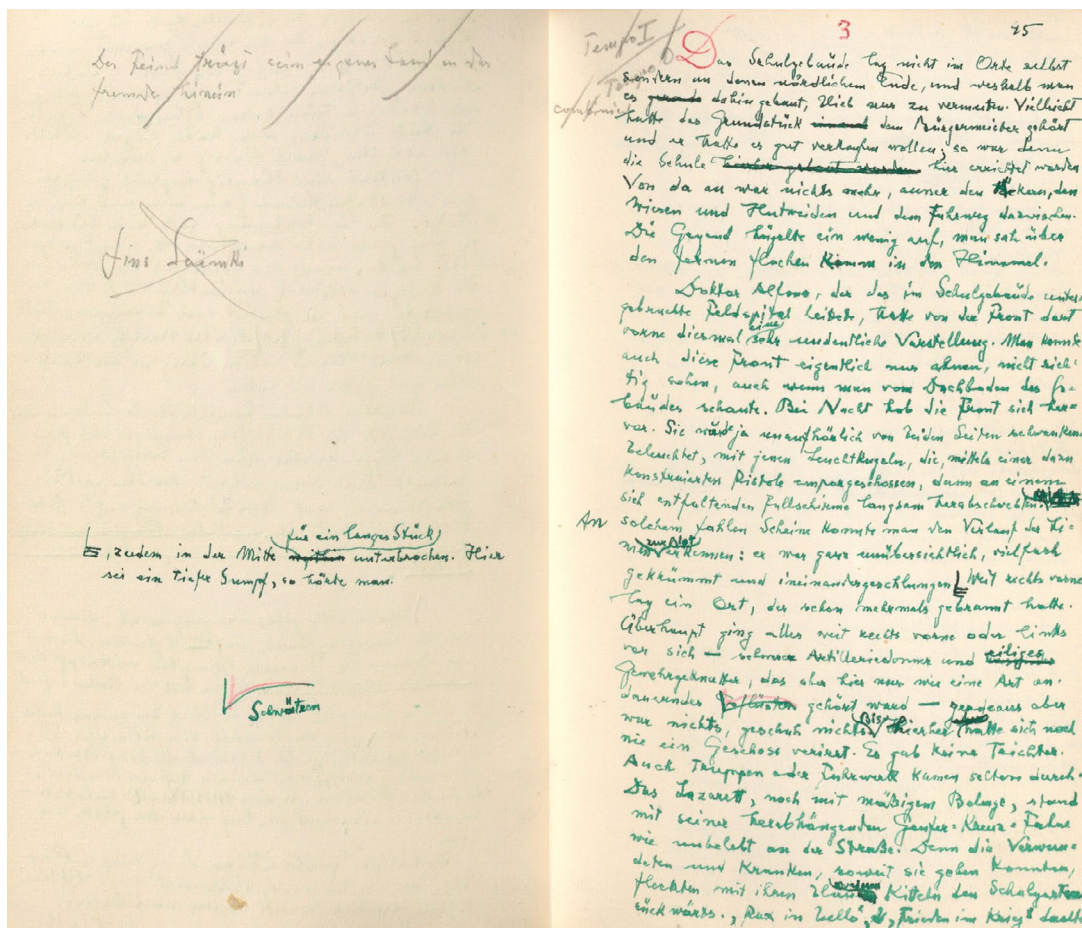 Der Feind trägt sein eigenes Land in das
fremde hinein
Eine
für ein langes Stück
, zudem in der Mitte unterbrochen. Hier
sei ein tiefer Sumpf, so hörte man.
Schwärzen
3
15
Tempo I
Tempo
Das Schulgebäude lag nicht im Orte selbst
sondern an dessen nördlichem Ende, und weshalb man
es gerade dahin gebaut, blieb nur zu vermuten. Vielleicht
hatte das Grundstück einmal dem Bürgermeister gehört
und er hatte es gut verkaufen wollen; so war denn
die Schule hierher gebaut worden hier errichtet worden
Von da an war nichts mehr, ausser den Äckern, den
Wiesen und Hutweiden und dem Fuhrweg dazwischen.
Die Gegend hügelte ein wenig auf, man sah über
den fernen flachen Kamm in den Himmel.
Doktor Alfons, der das im Schulgebäude unter-
gebrachte Feldspital leitete, hatte von der Front dort
vorne diesmal eine sehr undeutliche Vorstellung. Man konnte
auch diese Front eigentlich nur ahnen, nicht rich-
tig sehen, auch wenn man vom Dachboden des Ge-
bäudes schaute. Bei Nacht hob die Front sich her-
vor. Sie wurde ja unaufhörlich von beiden Seiten schwankend
beleuchtet, mit jenen Leuchtkugeln, die, mittels einer dazu
konstruierten Pistole emporgeschossen, dann an einem
sich entfaltenden Fallschirme langsam herabschwebten.
An solchem fahlen Scheine konnte man den Verlauf der Li-
nien zur Not erkennen: er war ganz unübersichtlich, vielfach
gekrümmt und ineinandergeschlungen. Weit rechts vorne
lag ein Ort, der schon mehrmals gebrannt hatte.
Überhaupt ging alles weit rechts vorne oder links
vor sich — schwerer Artilleriedonner und eiliges
Gewehrgeknatter, das aber hier nur wie eine Art an-
dauerndes Flüstern gehört ward — geradeaus aber
war nichts, geschah nichts. Bis hierher hatte sich noch
nie ein Geschoss verirrt. Es gab keine Trichter.
Auch Truppen oder Fuhrwerk kamen selten durch.
Das Lazarett, noch mit mäßigem Belage, stand
mit seiner herabhängenden Genfer-Kreuz-Fahne
wie unbelebt an der Straße. Denn die Verwun-
deten und Kranken, soweit sie gehen konnten,
fleckten mit ihren Kitteln den Schulgarten
rückwärts. „Pax in bello", „Frieden im Krieg" dachte